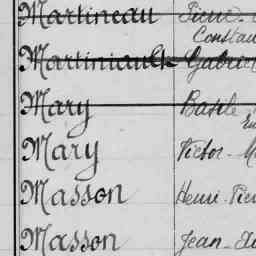 Martineau Pierre
Constan
Martiniault Gabriel
Mary Basile
Mary Victor - M
Masson Henri-Pier
Masson Jean-